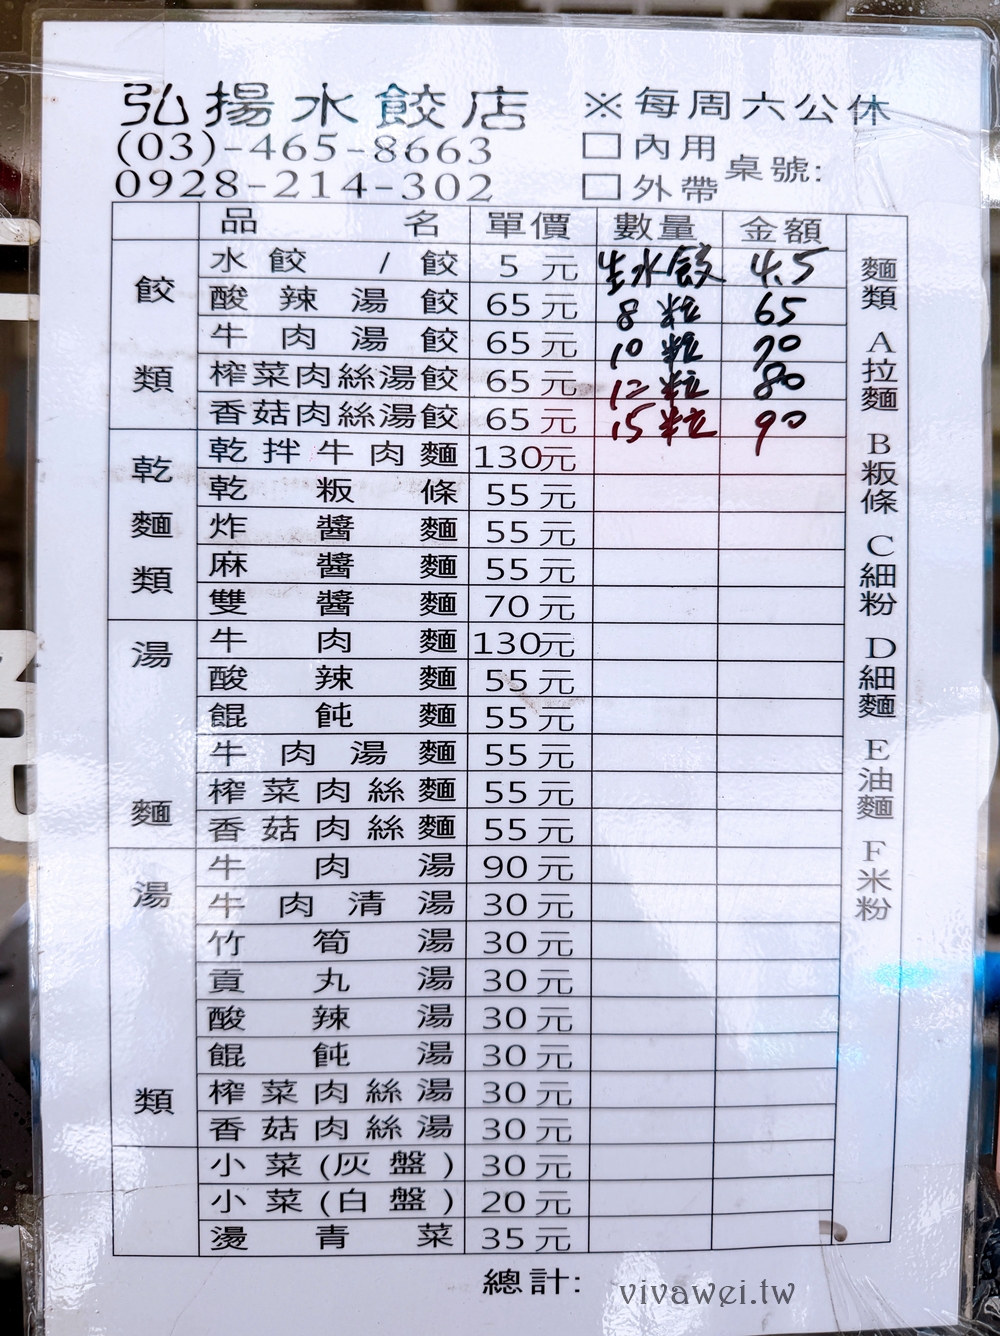 弘揚水餃店 ※每周六公休
(03)-465-8663 □內用 桌號:
0928-214-302 □外帶
品名 單價 數量 金額
餃類
水餃 / 餃 5元 生水餃 4.5
酸辣湯餃 65元 8 65
牛肉湯餃 65元 10 70
榨菜肉絲湯餃 65元 12 80
香菇肉絲湯餃 65元 15 90
乾麵類
乾拌牛肉麵 130元
乾粄條 55元
炸醬麵 55元
麻醬麵 55元
雙醬麵 70元
湯麵
牛肉麵 130元
酸辣麵 55元
餛飩麵 55元
牛肉湯麵 55元
榨菜肉絲麵 55元
香菇肉絲麵 55元
湯類
牛肉湯 90元
牛肉清湯 30元
竹筍湯 30元
貢丸湯 30元
酸辣湯 30元
餛飩湯 30元
榨菜肉絲湯 30元
香菇肉絲湯 30元
小菜(灰盤) 30元
小菜(白盤) 20元
燙青菜 35元
麵類 A拉麵 B粄條 C細粉 D細麵 E油麵 F米粉
總計:
vivawei.tw